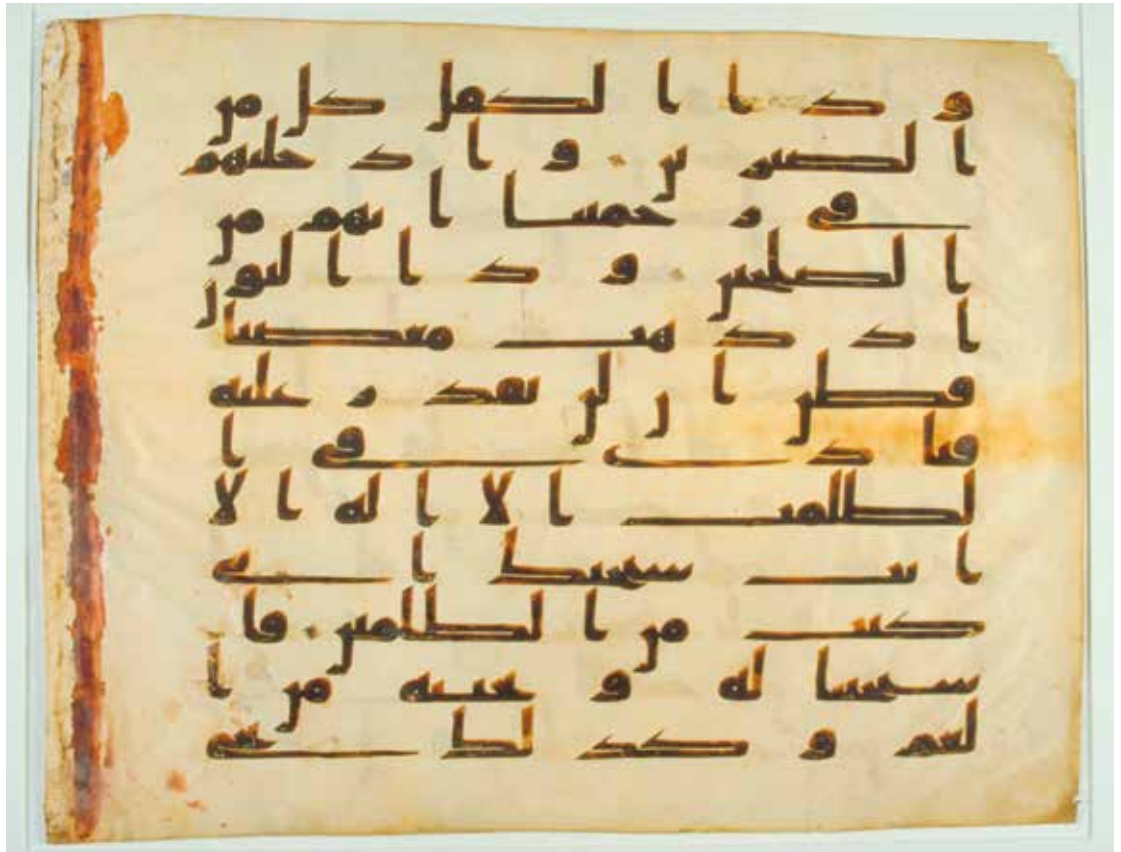 وذا الكفل كل من
الصبرين وادخلنهم
في رحمتنا انهم من
الصلحين وذا النون
اذ ذهب مغضبا
فظن ان لن نقدر عليه
فنادى في ا
لظلمت الا اله الا
انت سبحنك اني
كنت من الظلمين فا
ستجبنا له ونجينه من ا
لغم وكذلك ننجي